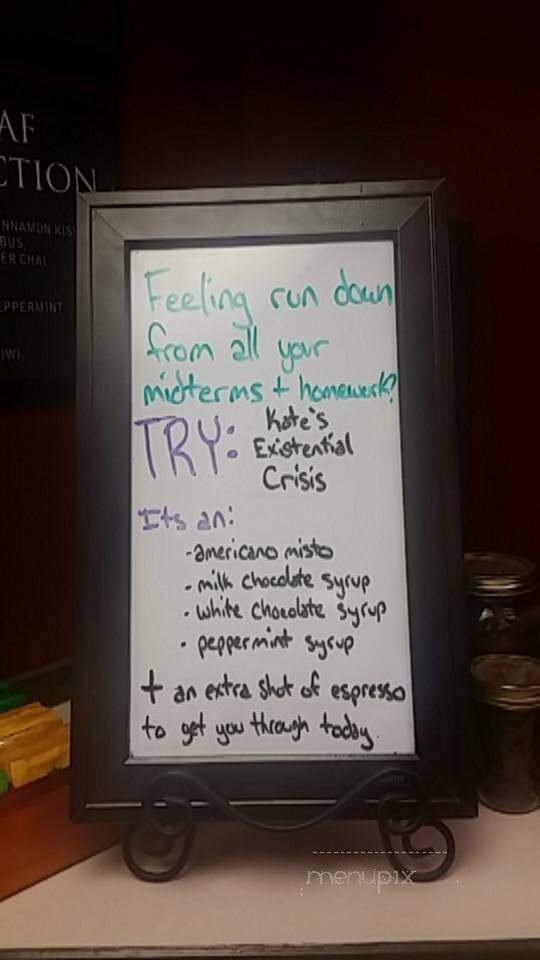 AF
CTION
NNAMON KIS
BUS,
ER CHAI
EPPERMINT
IWI,
Feeling run down
from all your
midterms + homework?
TRY: Kate's
Existential
Crisis
Its an:
-americano misto
- milk chocolate syrup
- white chocolate syrup
- peppermint syrup
+ an extra shot of espresso
to get you through today.
menupix